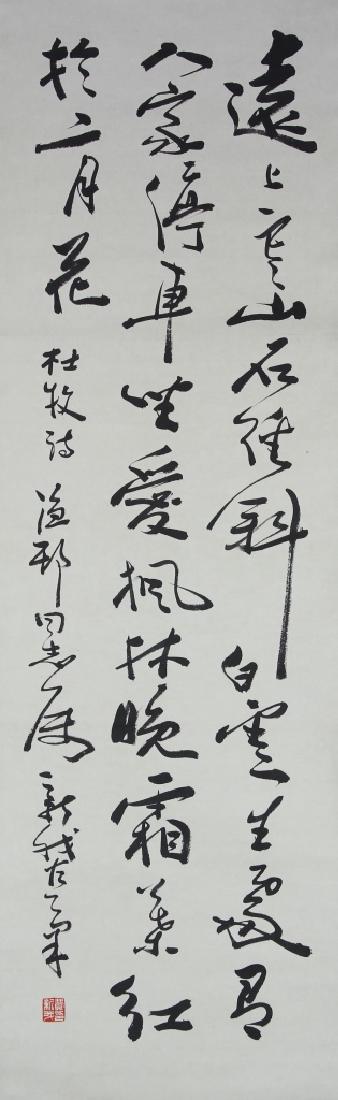 遠上寒山石徑斜白雲生處有
人家停車坐愛楓林晚霜葉紅
於二月花 杜牧詩 漁邨同志屬 新我左筆